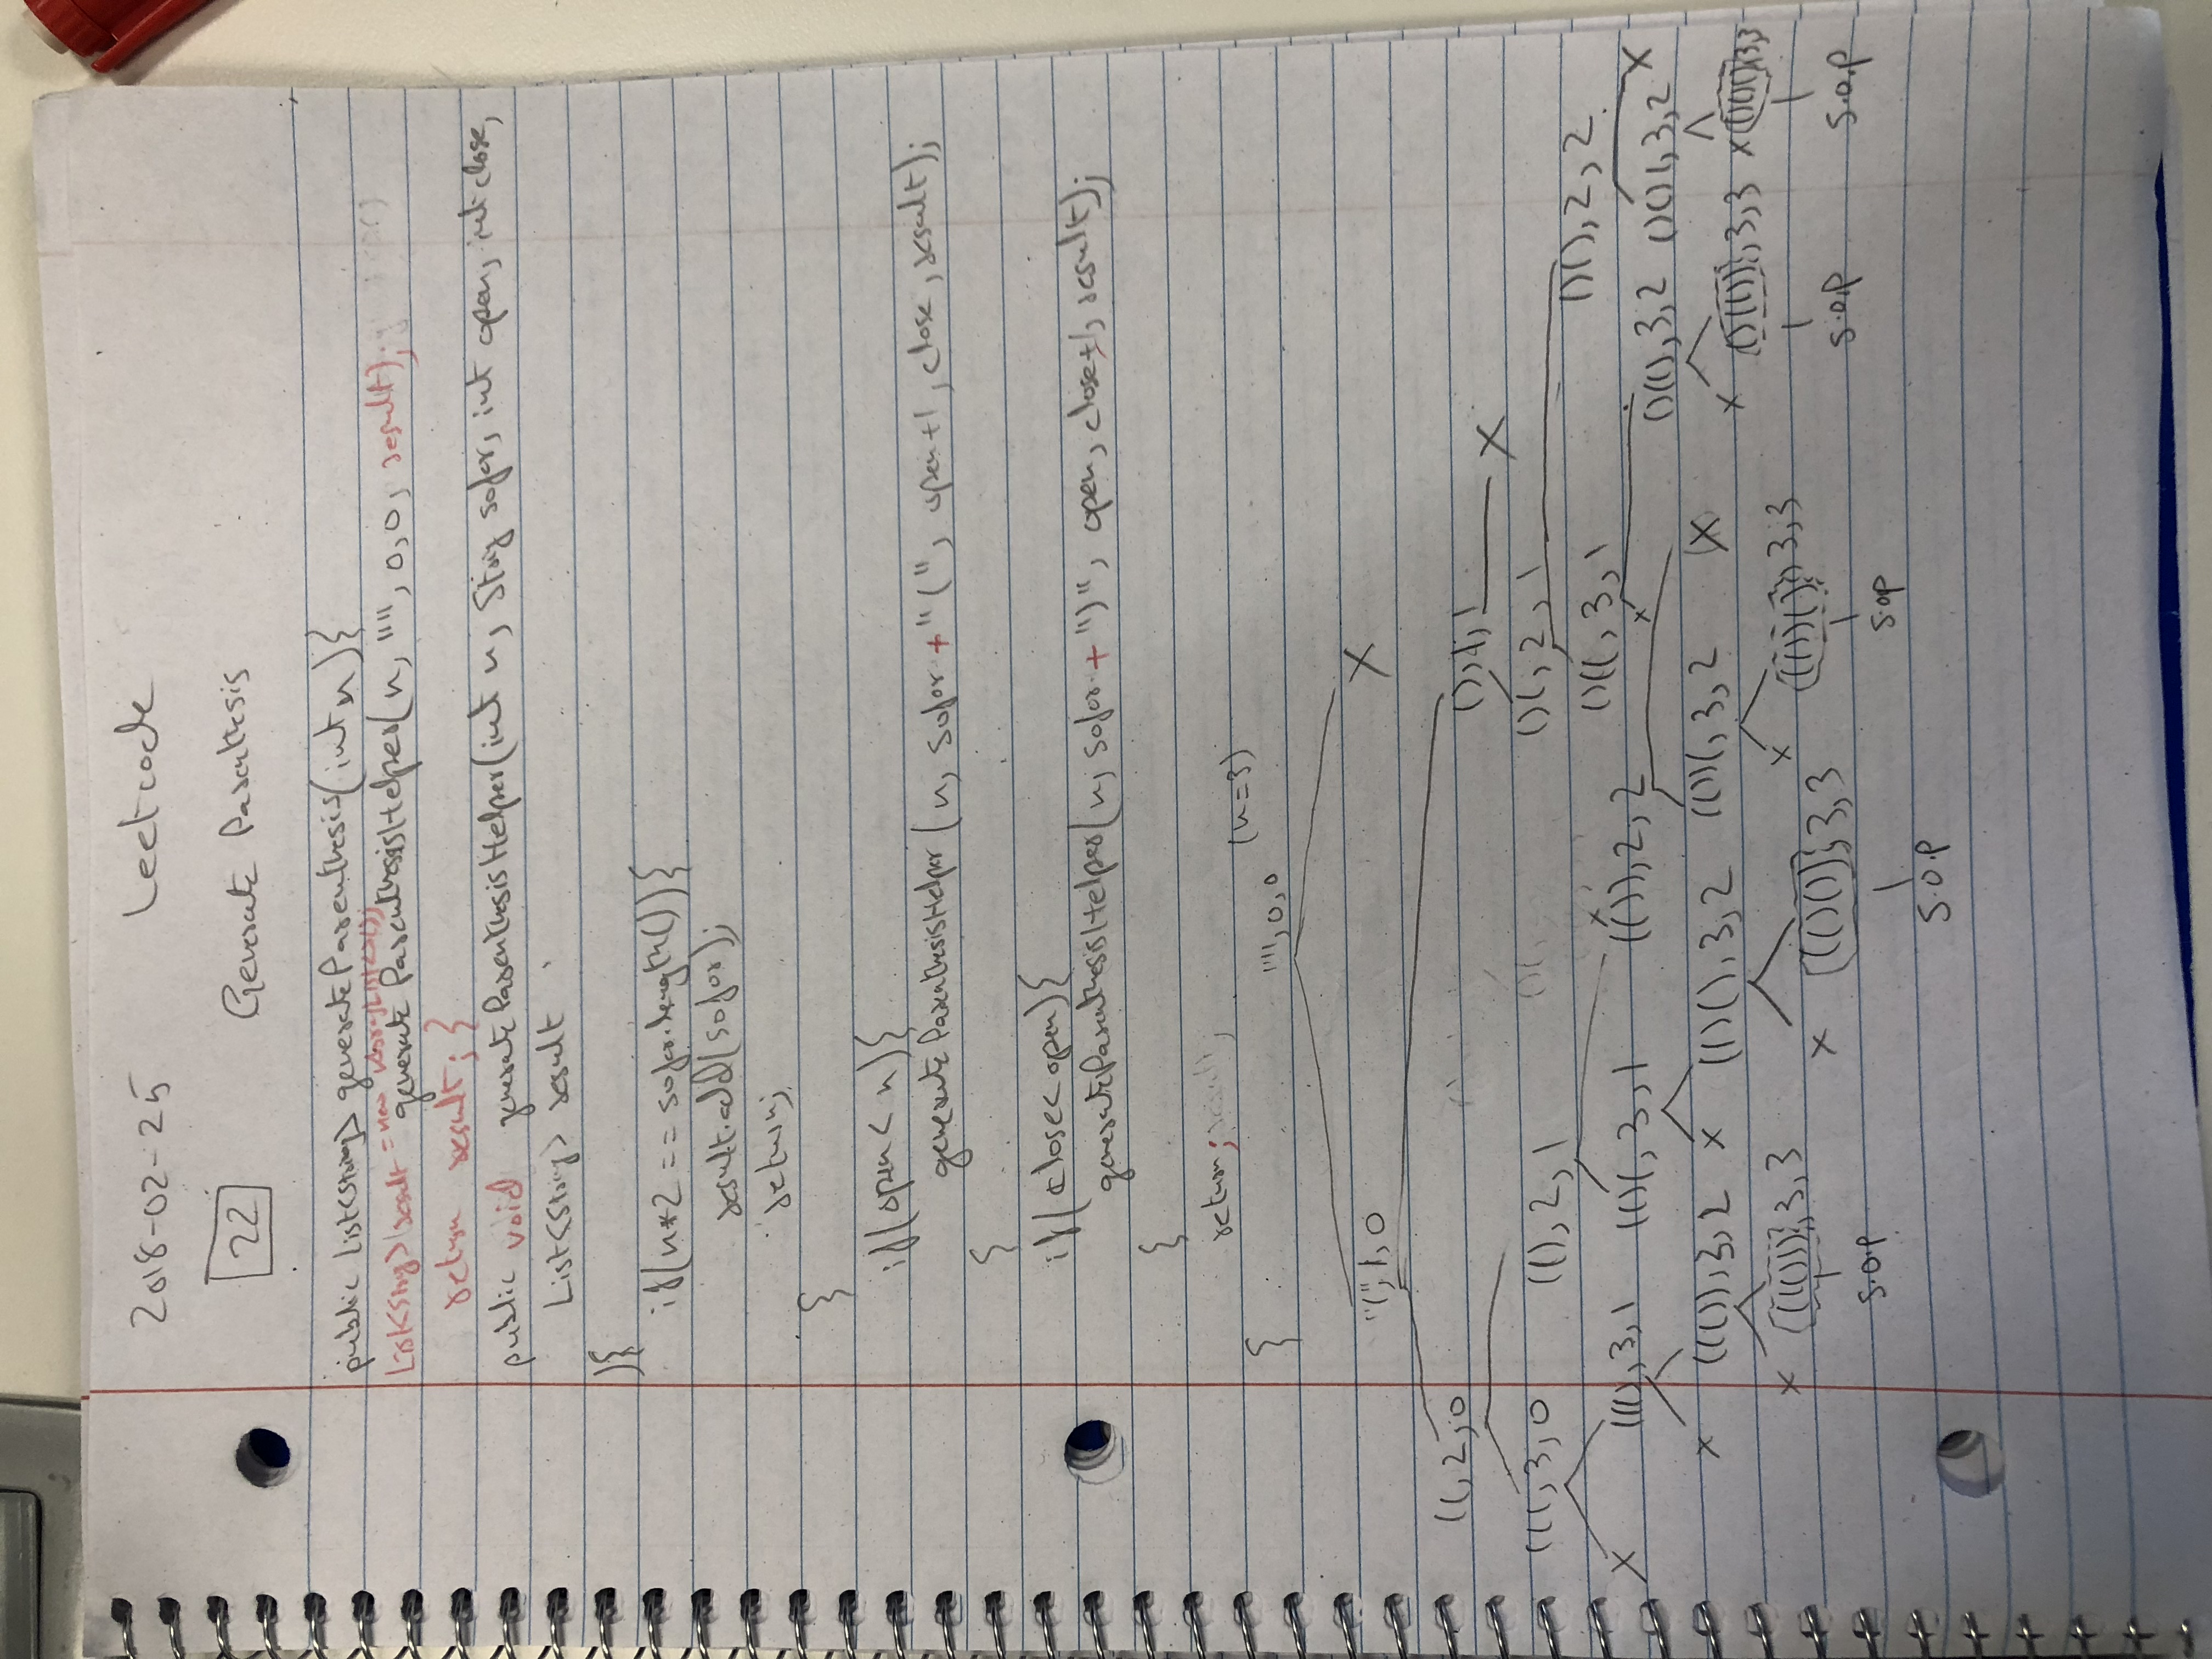 2018-02-25 Leetcode
22 Generate Parenthesis
public List<String> generateParenthesis(int n){
List<String> result = new ArrayList<>(); generateParenthesisHelper(n, "", 0,0, result);
return result; }
public void generateParenthesisHelper(int n, String sofar, int open, int close,
List<String> result
){
if(n*2 == sofar.length()){
result.add(sofar);
return;
}
if(open < n){
generateParenthesisHelper(n, sofar + "(", open+1, close, result);
}
if(close<open){
generateParenthesisHelper(n, sofar + ")", open, close+1, result);
}
return;
}
(n=3)
"", 0, 0
"(", 1, 0 X
((, 2, 0 (), 1, 1 X
(((, 3, 0 ((), 2, 1 ()(, 2, 1
X (((), 3, 1 (()(, 3, 1 (()), 2, 2 ()((, 3, 1 ()(), 2, 2
X ()((), 3, 2 ()()(, 3, 2 X
X ((()), 3, 2 X (()(), 3, 2 (())(, 3, 2 X X ()(()), 3, 3 X ()()(), 3, 3
X ((())), 3, 3 X (()()), 3, 3 X (())(), 3, 3
S.O.P S.O.P S.O.P S.O.P
S.O.P